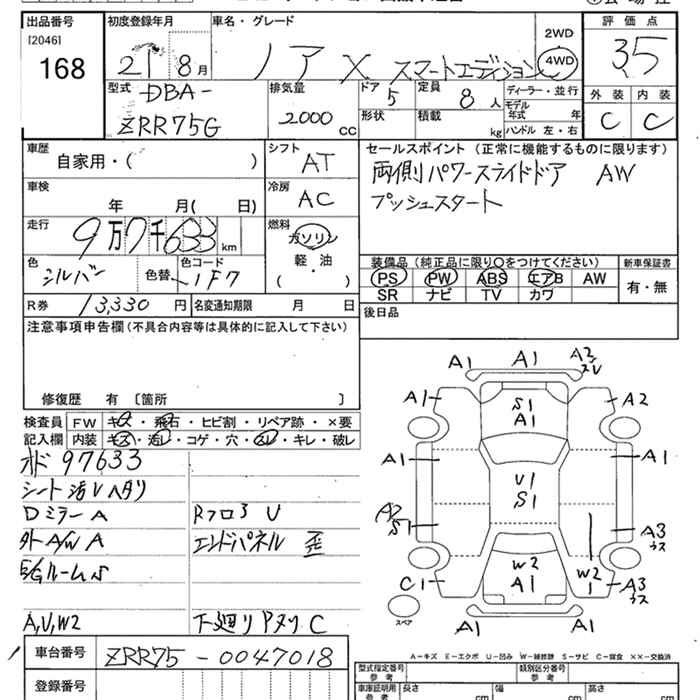 出品番号
[2046]
168
初度登録年月
21 8月
車名・グレード
ノア X スマートエディション
2WD
4WD
評価点
3.5
外装 内装
C C
型式
DBA-
ZRR75G
排気量
2000 CC
ドア
5
形状
定員
8人
積載
kg
ディーラー・並行
モデル年式 年
ハンドル 左・右
車歴
自家用・( )
シフト
AT
車検
年 月( 日)
冷房
AC
走行
9万7千633 km
燃料
ガソリン
軽・油
( )
色
シルバー
色替
色コード
1F7
セールスポイント(正常に機能するものに限ります)
両側パワースライドドア AW
プッシュスタート
装備品(純正品に限り○をつけてください)
PS PW ABS エアB AW
SR ナビ TV カワ
新車保証書
有・無
R券 13,330円
名変通知期限 月 日
後日品
注意事項申告欄(不具合内容等は具体的に記入して下さい)
修復歴 有 [箇所 ]
検査員記入欄
FW キズ・飛石・ヒビ割・リペア跡・×要
内装 キズ・汚レ・コゲ・穴・スレ・キレ・破レ
オド 97633
シート汚レ ヘタリ
Dミラー A
外A/W A
E/Gルーム S
A,U,W2
Rフロア U
エンドパネル 歪
下廻り Pヌリ C
A1 A1 A2 スレ
A1 S1 A1 A2
A1 U1 S1 A1
A2 S1 A3 ウス
C1 W2 A1 W2 1 A3 ウス
A1 A1
スペア
A-キズ E-エクボ U-凹み W-補修跡 S-サビ C-腐食 ××-交換済
車台番号
ZRR75-0047018
登録番号
型式指定番号 参考
類別区分番号 参考
車庫証明用 参考
長さ cm
幅 cm
高さ cm